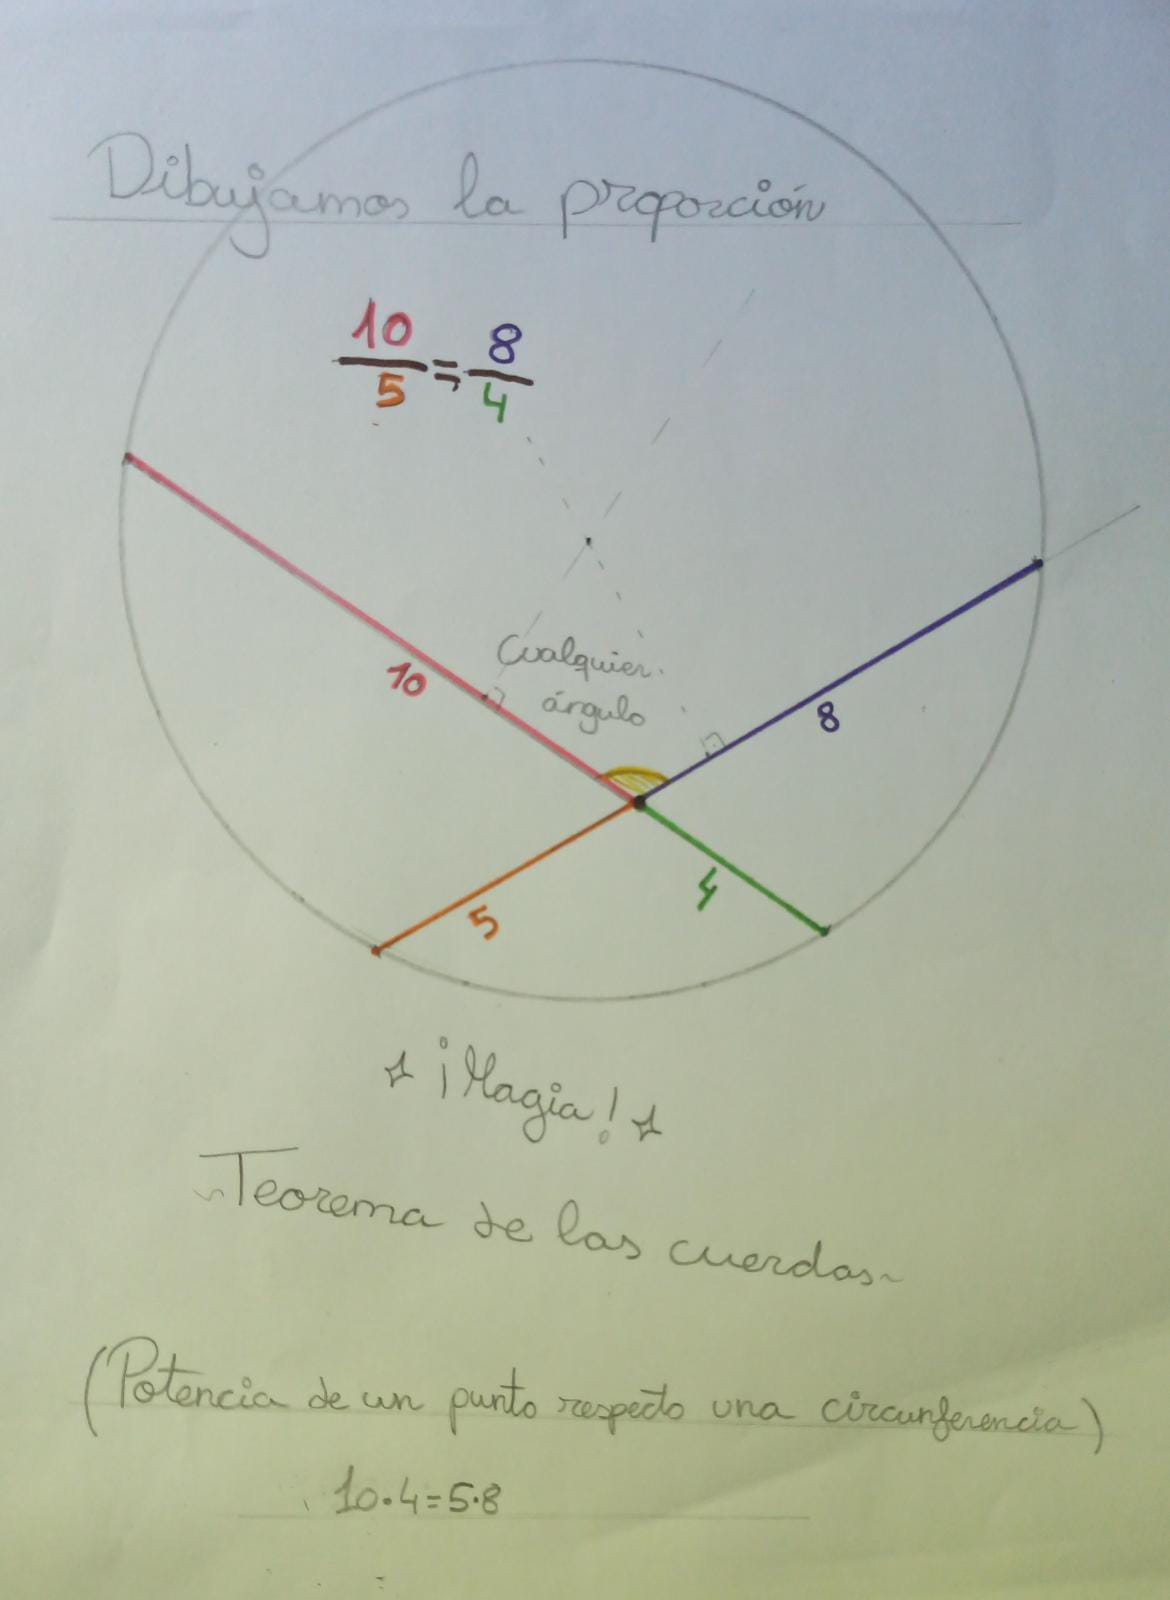 Dibujamos la proporción
10/5 = 8/4
10
Cualquier
ángulo
8
5
4
¡Magia!
~Teorema de las cuerdas~
(Potencia de un punto respecto una circunferencia)
10·4=5·8